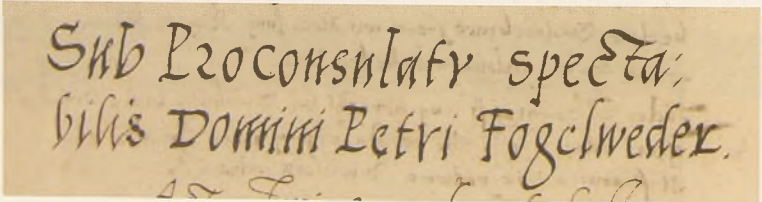 Sub Proconsulatu specta:
bilis Domini Petri Fogelweder.